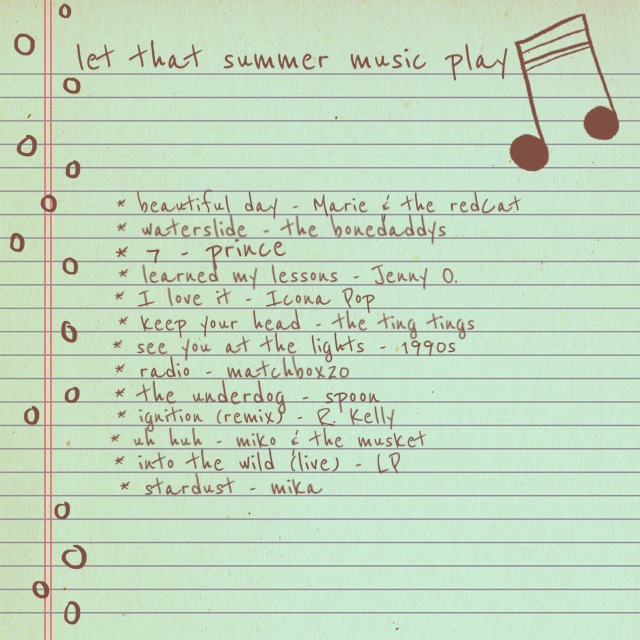 let that summer music play
* beautiful day - Marie & the redcat
* waterslide - the bonedaddys
* 7 - prince
* learned my lessons - Jenny O.
* I love it - Icona Pop
* keep your head - the ting tings
* see you at the lights - 1990s
* radio - matchbox20
* the underdog - spoon
* ignition (remix) - R. Kelly
* uh huh - miko & the musket
* into the wild (live) - LP
* stardust - mika